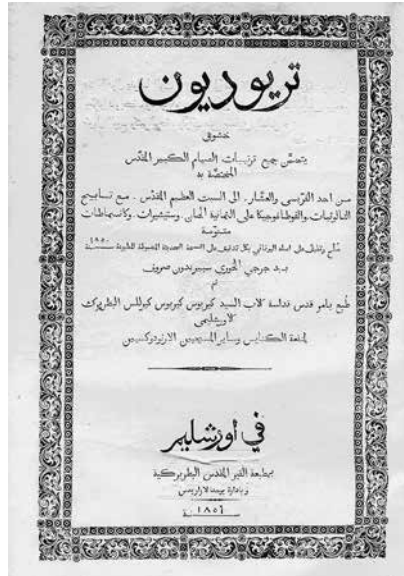 تريوديون
خشوعي
يتضمن جميع ترتيبات الصيام الكبير المقدس
المختصة به
من احد الفريسي والعشار. الى السبت العظيم المقدس. مع تسابيح
الثالوثيات والفوطاغوجيكا على الثمانية الحان. وستيشيرات. وكاسيماطات
متنوعة
على اصله اليوناني بكل تدقيق على النسخة الجديدة المطبوعة
بيد جرجي الخوري سبيريدون صروف
ثم
طبع بامر قدس قداسة كلاب السيد كيريوس كيريوس كيرللس البطريرك
كلاورشليمي
لمنفعة الكنايس وساير المسيحيين الارثودوكسيين
في اورشليم
بمطبعة القبر المقدس البطريركية
سنة ١٨٥٦